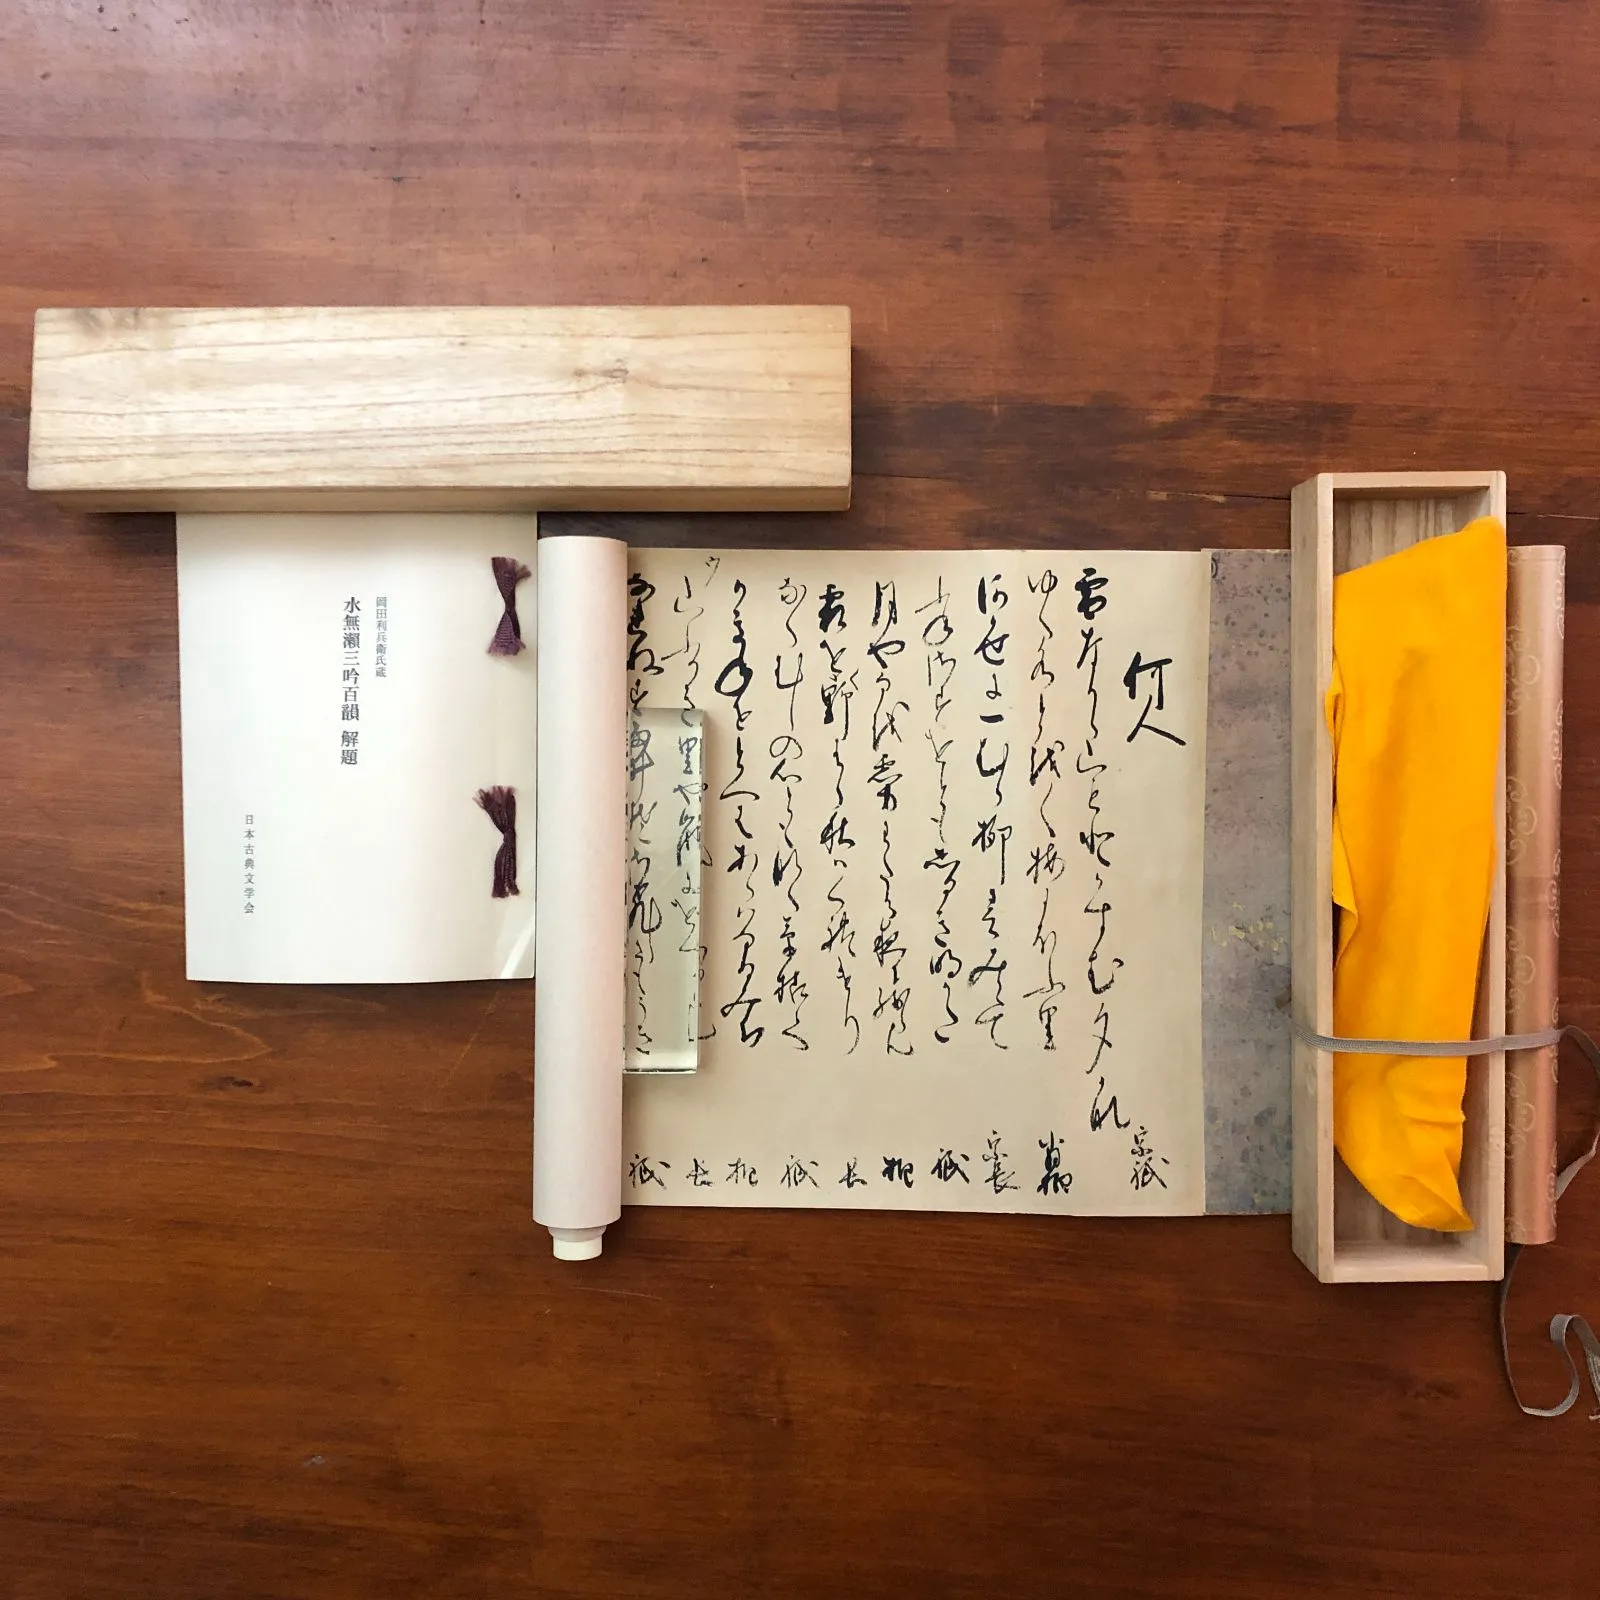 何人
雪なから山もとかすむ夕かな 宗祇
ゆく水とをく梅にほふ里 肖柏
河かせに一むら柳春みえて 宗長
舟さすをともしるき明かた 祇
月や猶霧わたる夜に残るらん 柏
霜をく野はら秋はくれけり 長
なくむしの心ともなく草枯て 祇
かきねをとへはあらはなるみち 柏
ウ
山ふかき里や嵐にをくるらん 長
祇
岡田利兵衛氏蔵
水無瀬三吟百韻 解題
日本古典文学会